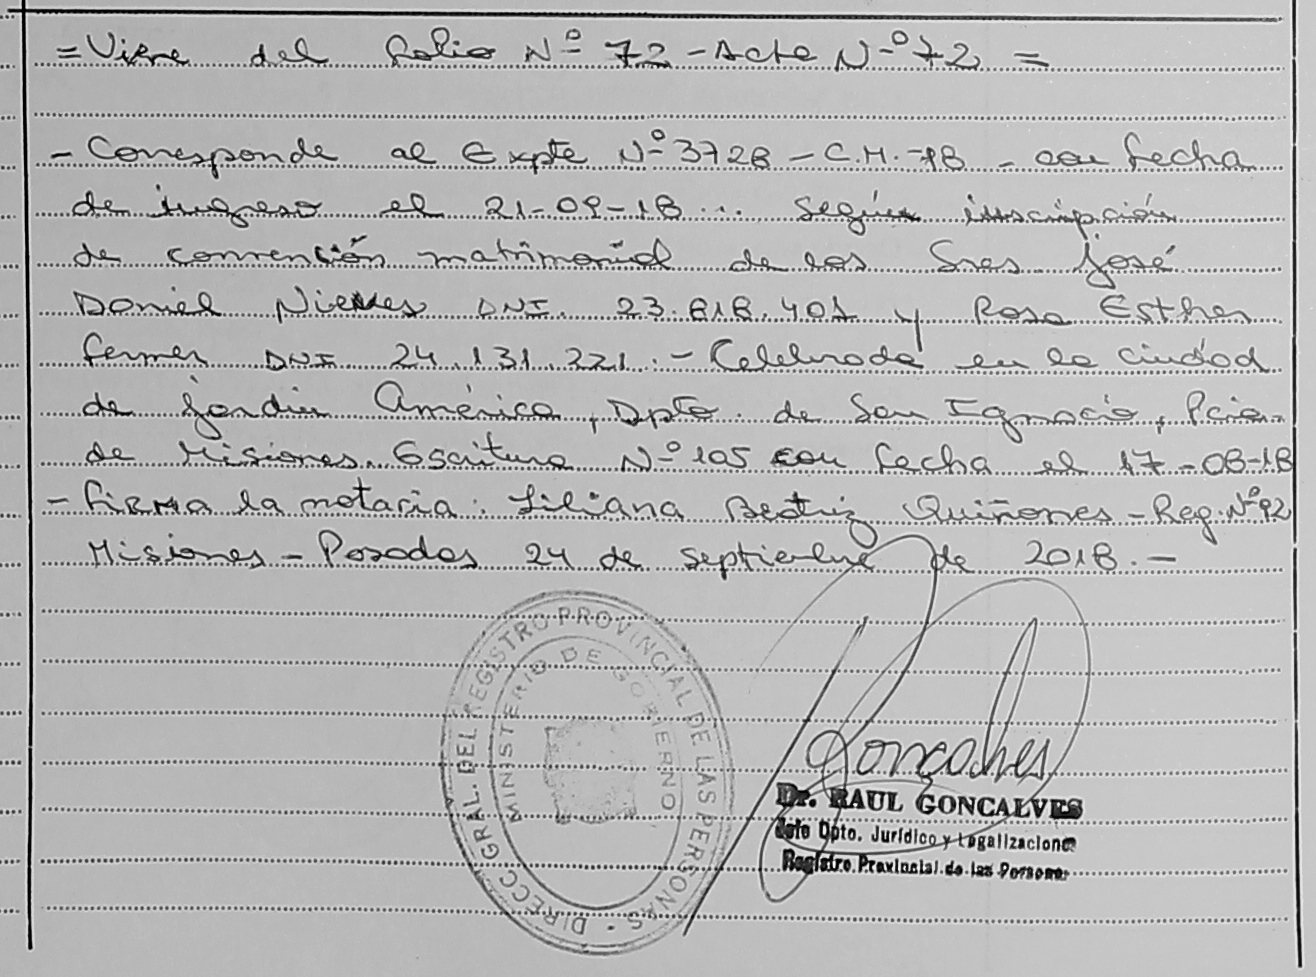 = Viene del folio Nº 72 - Acta Nº 72 =
- Corresponde al Expte Nº 3728 - C.M. - 18 - con fecha
de ingreso el 21-09-18... según inscripción
de convención matrimonial de los Sres José
Daniel Nieves DNI. 23.818.401 y Rosa Esther
Fermer DNI 24.131.221.- Celebrada en la ciudad
de Jardín América, Dpto. de San Ignacio, Pcia.
de Misiones. Escritura Nº 105 con fecha el 17-08-18
- Firma la notaria: Liliana Beatriz Quiñones - Reg. Nº 92
Misiones - Posadas 24 de septiembre de 2018.-
DIRECC. GRAL. DEL REGISTRO PROVINCIAL DE LAS PERSONAS -
MINISTERIO DE GOBIERNO
Goncalves
Dr. RAUL GONCALVES
Jefe Dpto. Jurídico y Legalizacione
Registro Provincial de las Personas